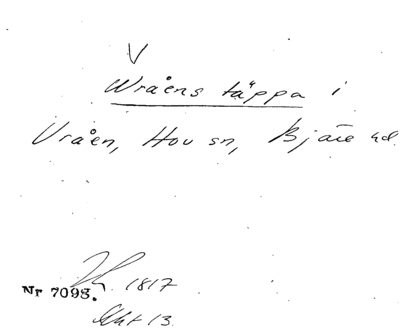 V
Wraens täppa i
Vråen, Hov sn, Bjäre hd.
1817
Nr 7098.
Akt 13.